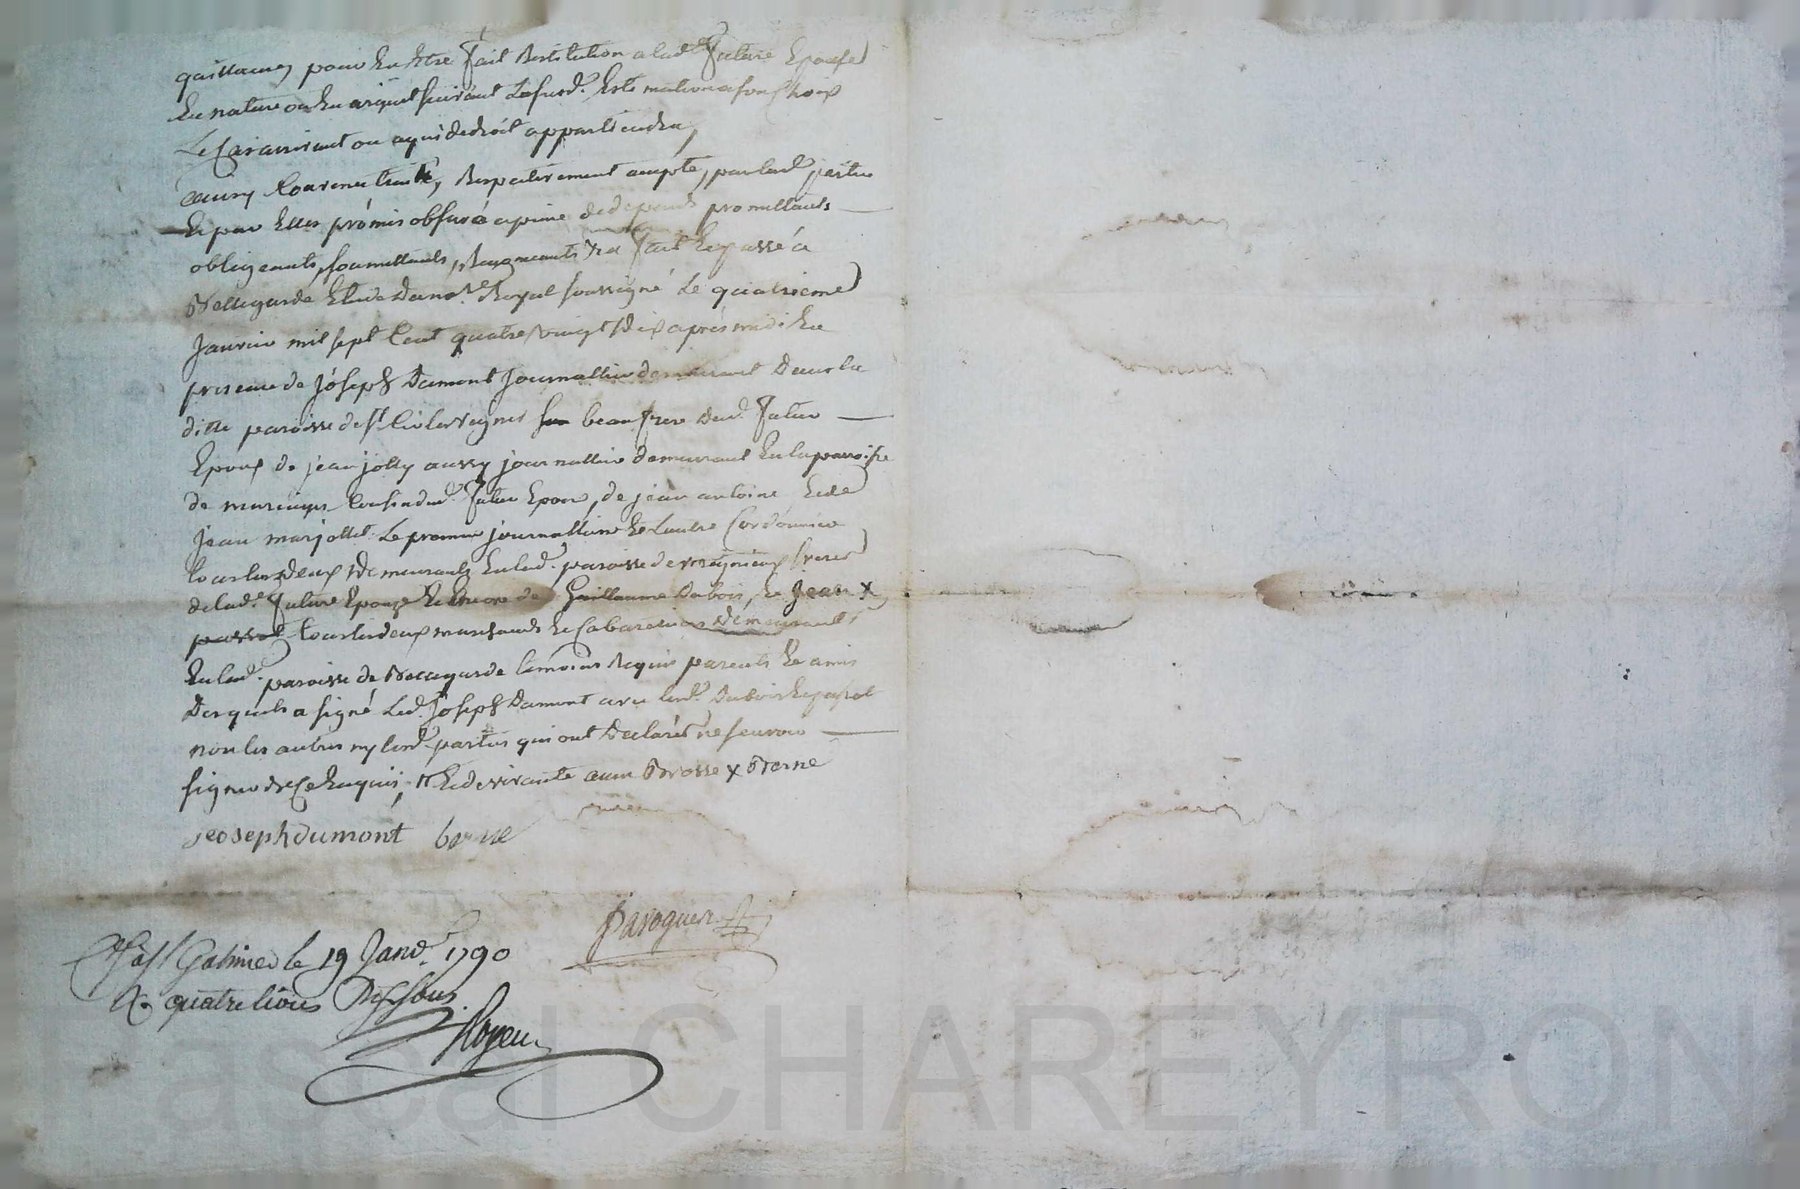 pour En Etre fait Restitution a lad.e future Epouse
En nature ou En argent suivant Lesusd. Estimation a son Choix
Le Cas arrivant ou a qui de droit appartiendra,
Respectivement accepté, par lesd. parties
Et par Elles promis observé a peine de depends promettants
obligeants, soumettants, Renonçants fait Et passé a
Bellegarde Etude du no.re Royal soussigné Le quatrieme
Janvier mil sept Cent quatre vingt dix apres midi En
presence de Joseph Dumont Journallier demeurant dans la
ditte paroisse de st beaufrere dud. futur
Epoux de jean jolly aussy journallier demeurant En la paroisse
de dud. futur Epoux, de jean antoine Et de
jean marjollet Le premier journallier Et Lautre Cordonnier
tous les deux demeurants En lad. paroisse de freres
de lad.e future Epouze Et Encore de Guillaume Dubois, Et Jean x
tous les deux marchands Et Cabaretiers demeurants
En lad. paroisse de Bellegarde temoins Requis parents Et amis
Desquels a signé Led. Joseph Dumont avec lesd. Dubois Et
non les autres ny lesd. parties qui ont Declaré ne scavoir
signer de Ce Enquis,
jeoseph dumont
Paroguez
A st Galmier le 19 Janv.r 1790
R. quatre livres Dix sous.
Royer
Pascal CHAREYRON